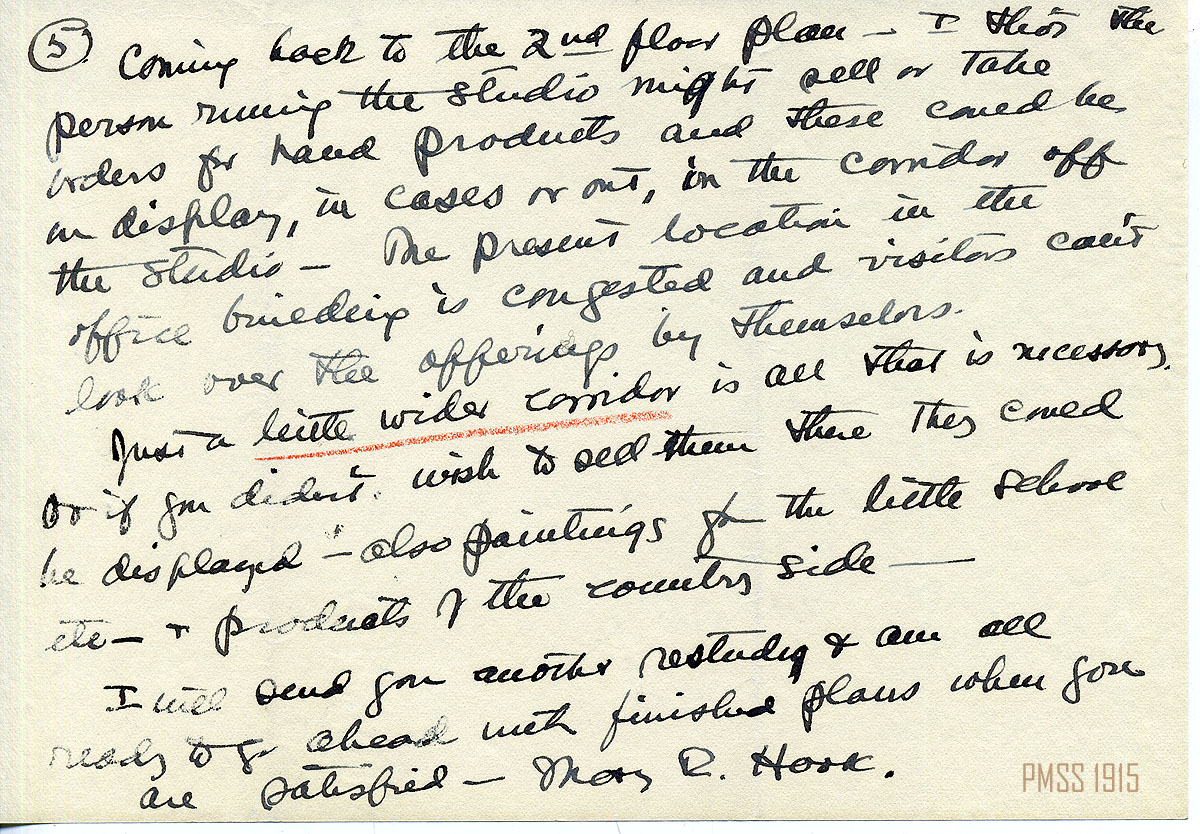 ⑤ Coming back to the 2nd floor plan – I tho't the
person runing the studio might sell or take
orders for hand products and these could be
on display, in cases or out, in the corridor off
the studio – The present location in the
office building is congested and visitors can't
look over the offerings by themselvs.
Just a little wider corridor is all that is necessary.
Or if you didn't wish to sell them there they could
be displayed – also paintings for the little school
etc – + products of the country side –
I will send you another restudy & am all
ready to go ahead with finished plans when you
are satisfied – Mary R. Hook.
PMSS 1915